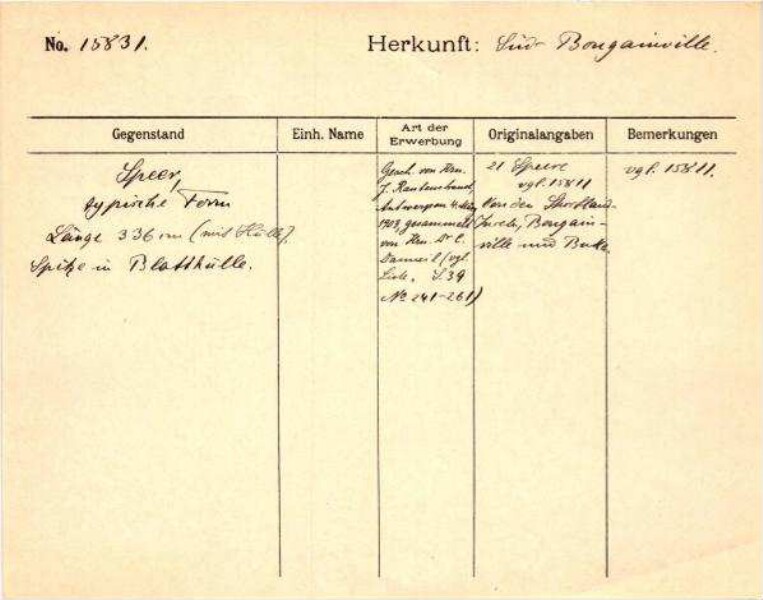 No. 15831. Herkunft: Süd Bougainville.
Gegenstand Einh. Name Art der Erwerbung Originalangaben Bemerkungen
Speer,
typische Form
Länge 336 cm (mit Hülle).
Spitze in Blatthülle.
Gesch. von Hrn.
J. Rautenstrauch,
Antwerpen 4. März
1909, gesammelt
von Hrn. Dr C.
Danneil (vgl.
Liste, S. 39
No 241-261)
21 Speere
vgl. 15811
Von den Shortland-
Inseln, Bougain-
ville und Buka.
vgl. 15811.